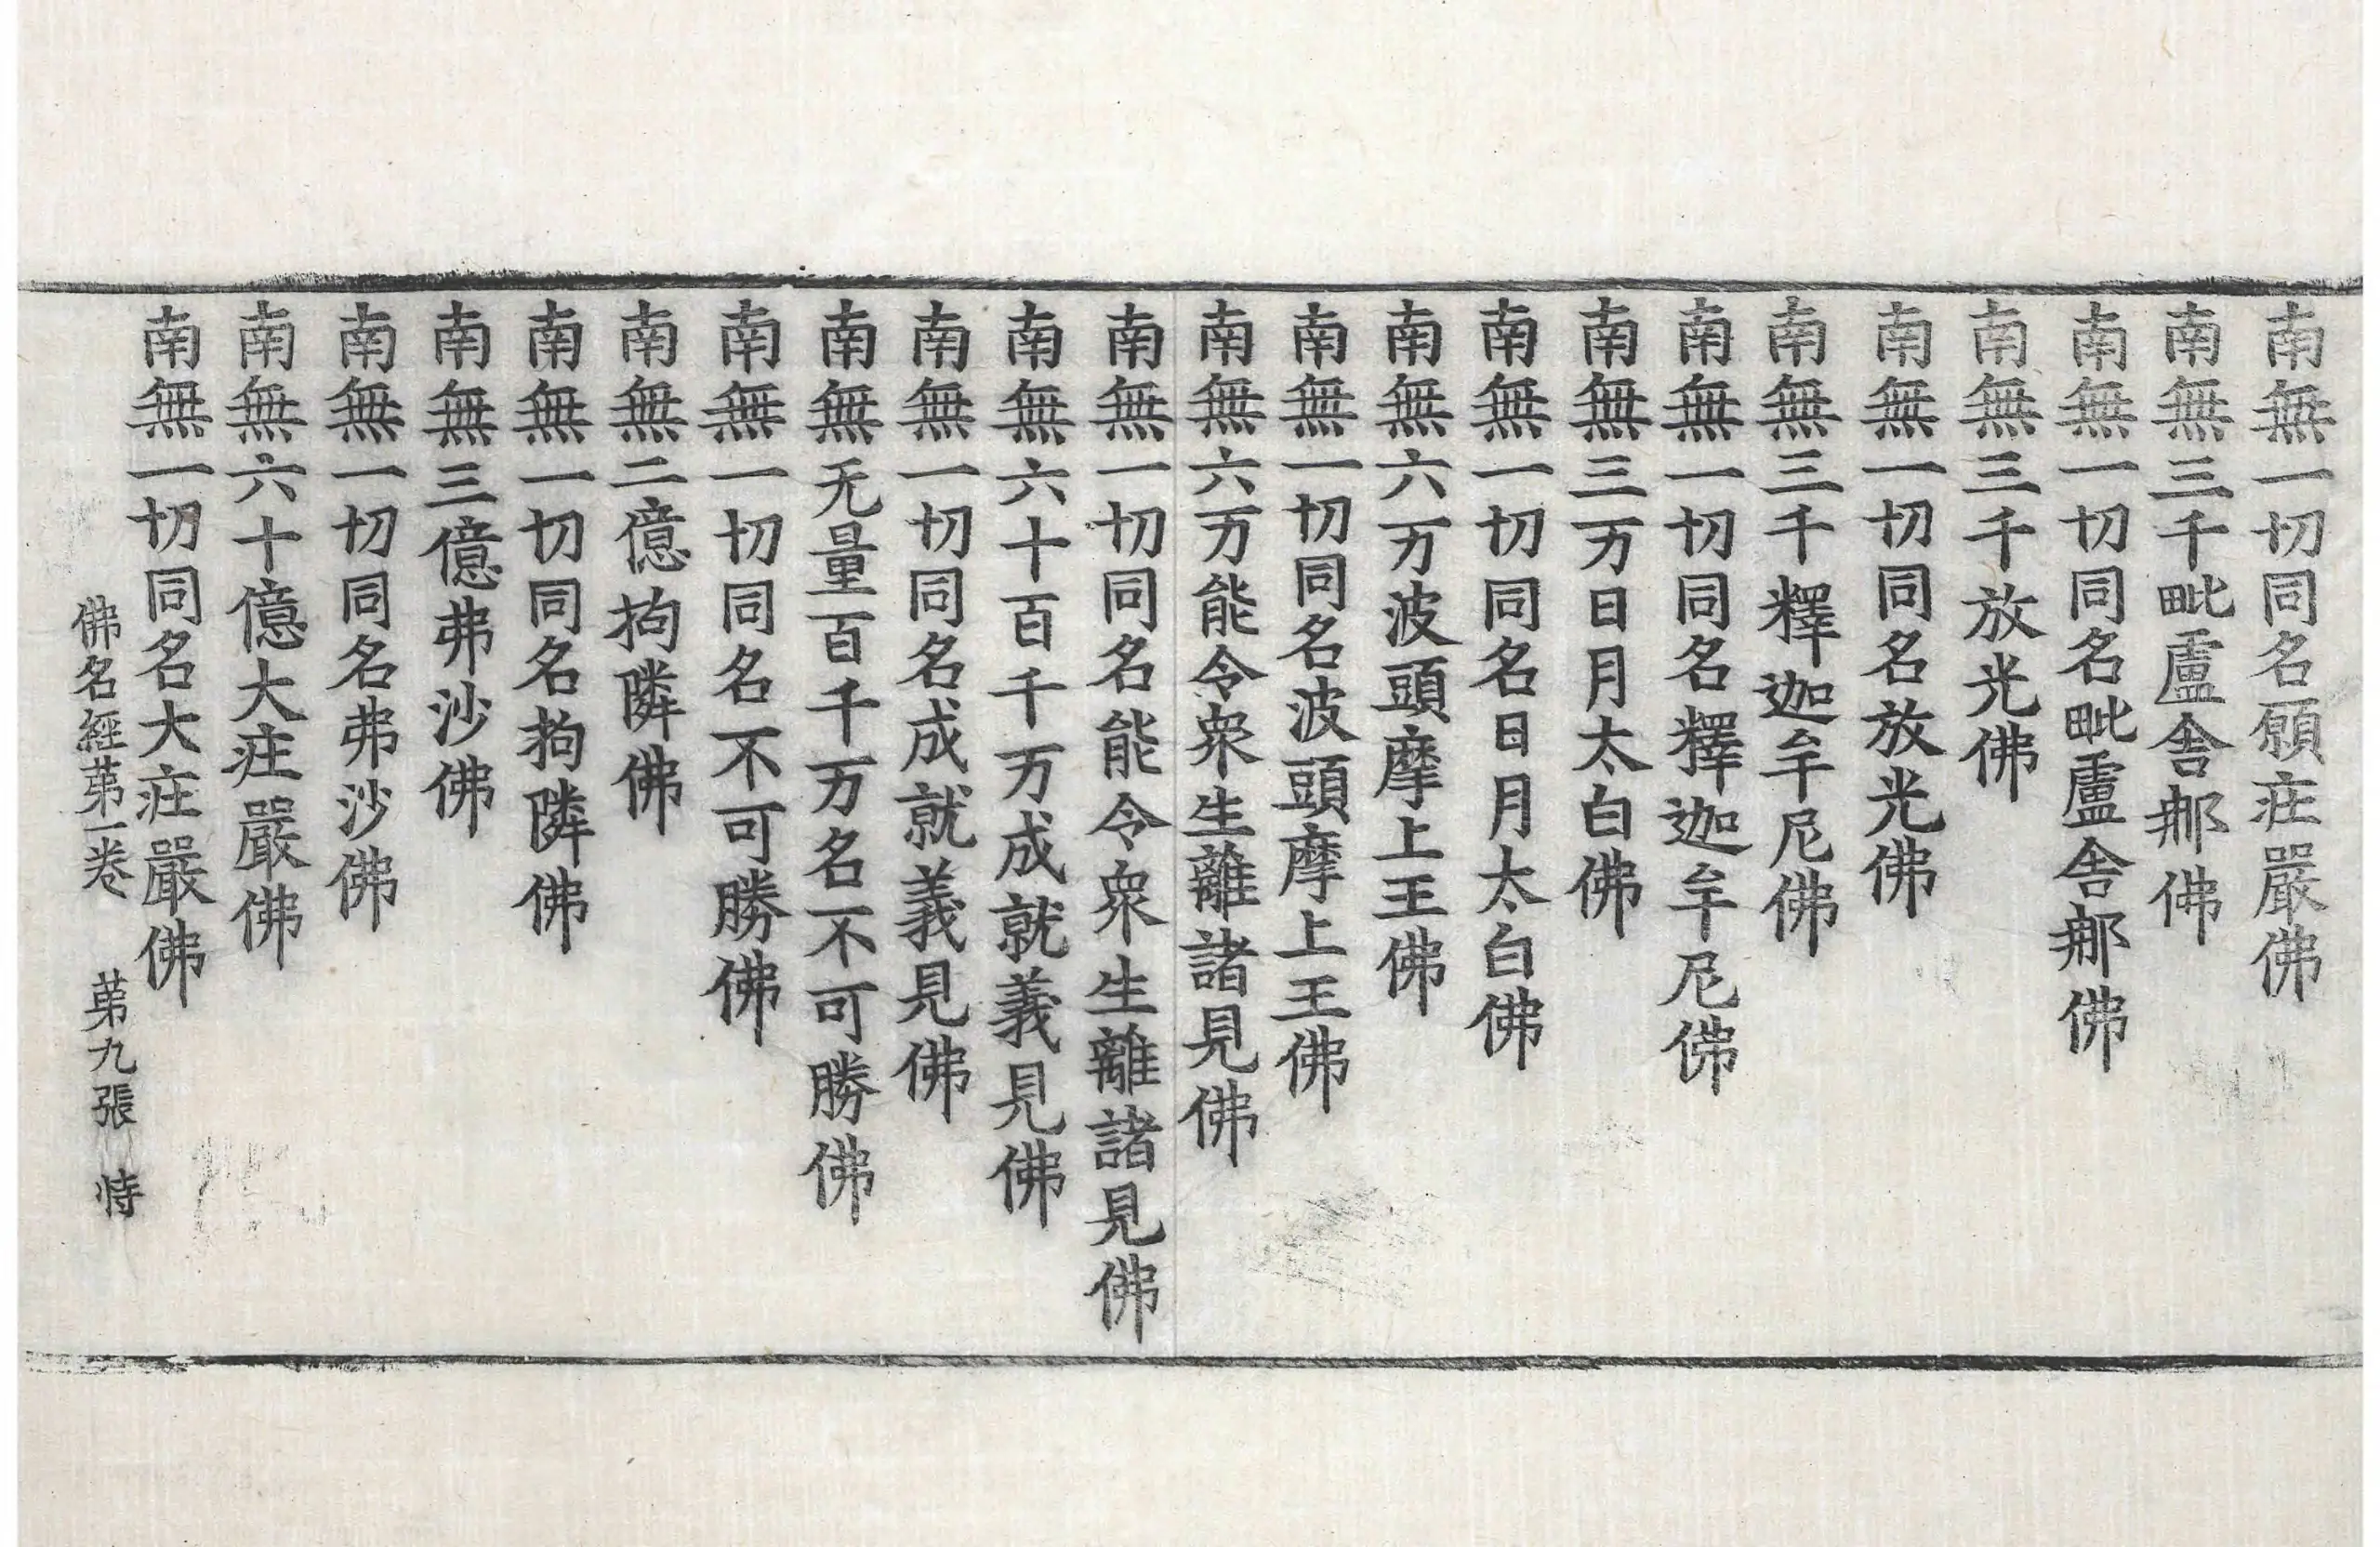 南無一切同名願疘嚴佛
南無三千毗盧舎那佛
南無一切同名毗盧舎那佛
南無三千放光佛
南無一切同名放光佛
南無三千釋迦牟尼佛
南無一切同名釋迦牟尼佛
南無三万日月太白佛
南無一切同名日月太白佛
南無六万波頭摩上王佛
南無一切同名波頭摩上王佛
南無六万能令衆生離諸見佛
南無一切同名能令衆生離諸見佛
南無六十百千万成就義見佛
南無一切同名成就義見佛
南無无量百千万名不可勝佛
南無一切同名不可勝佛
南無二億拘隣佛
南無一切同名拘隣佛
南無三億弗沙佛
南無一切同名弗沙佛
南無六十億大疘嚴佛
南無一切同名大疘嚴佛
佛名經苐一卷 苐九張 恃